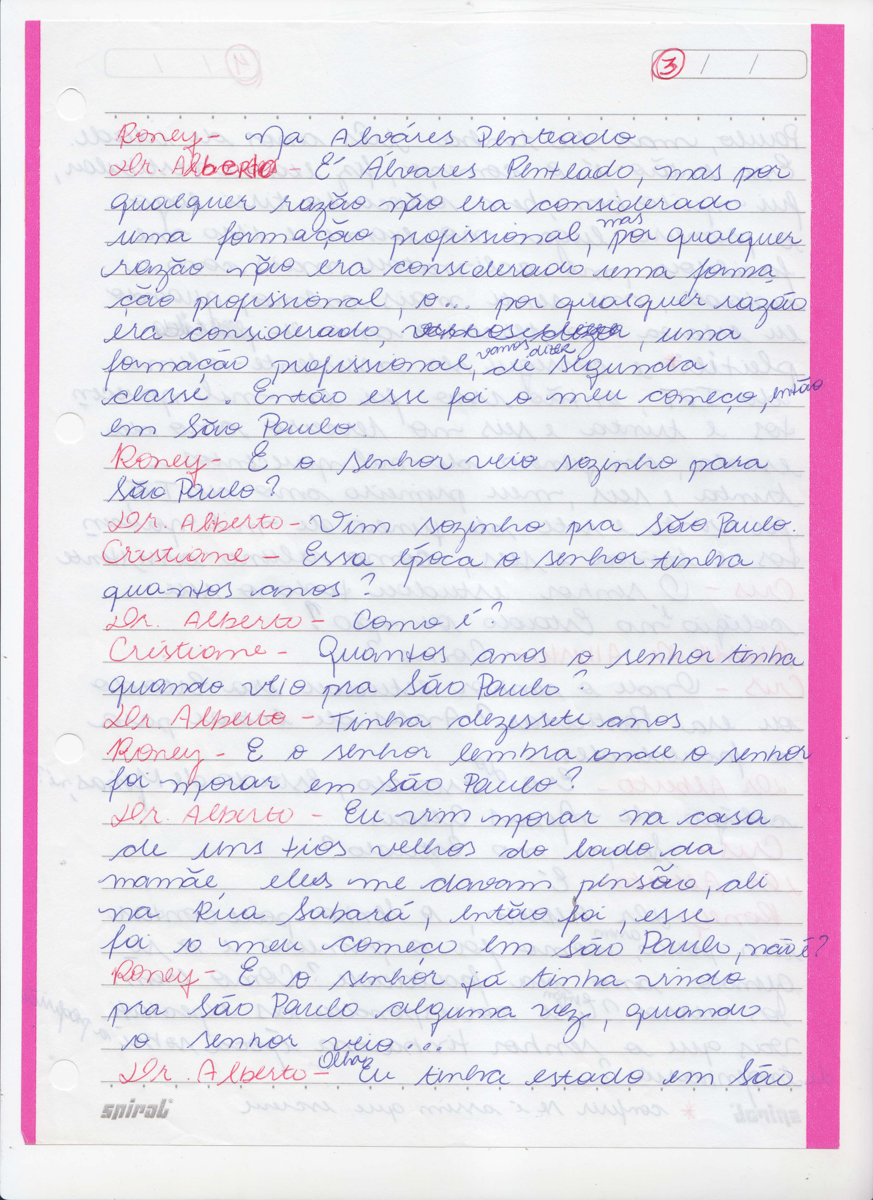 3 / /
Roney - Na Alváres Penteado
Dr. Alberto - É Álvares Penteado, mas por
qualquer razão não era considerado
uma formação profissional, mas por qualquer
razão não era considerado uma forma
ção profissional, o... por qualquer razão
era considerado, uma
formação profissional, vamos dizer de segunda
classe. Então esse foi o meu começo, então
em São Paulo
Roney - E o senhor veio sozinho para
São Paulo?
Dr. Alberto - Vim sozinho pra São Paulo.
Cristiane - Essa época o senhor tinha
quantos anos?
Dr. Alberto - Como é?
Cristiane - Quantos anos o senhor tinha
quando veio pra São Paulo?
Dr Alberto - Tinha dezessete anos
Roney - E o senhor lembra onde o senhor
foi morar em São Paulo?
Dr. Alberto - Eu vim morar na casa
de uns tios velhos do lado da
mamãe, eles me davam pensão, ali
na Rua Sabará, então foi, esse
foi o meu começo em São Paulo, não é?
Roney - E o senhor já tinha vindo
pra São Paulo alguma vez, quando
o senhor veio...
Dr. Alberto - Olha, Eu tinha estado em São
spiral